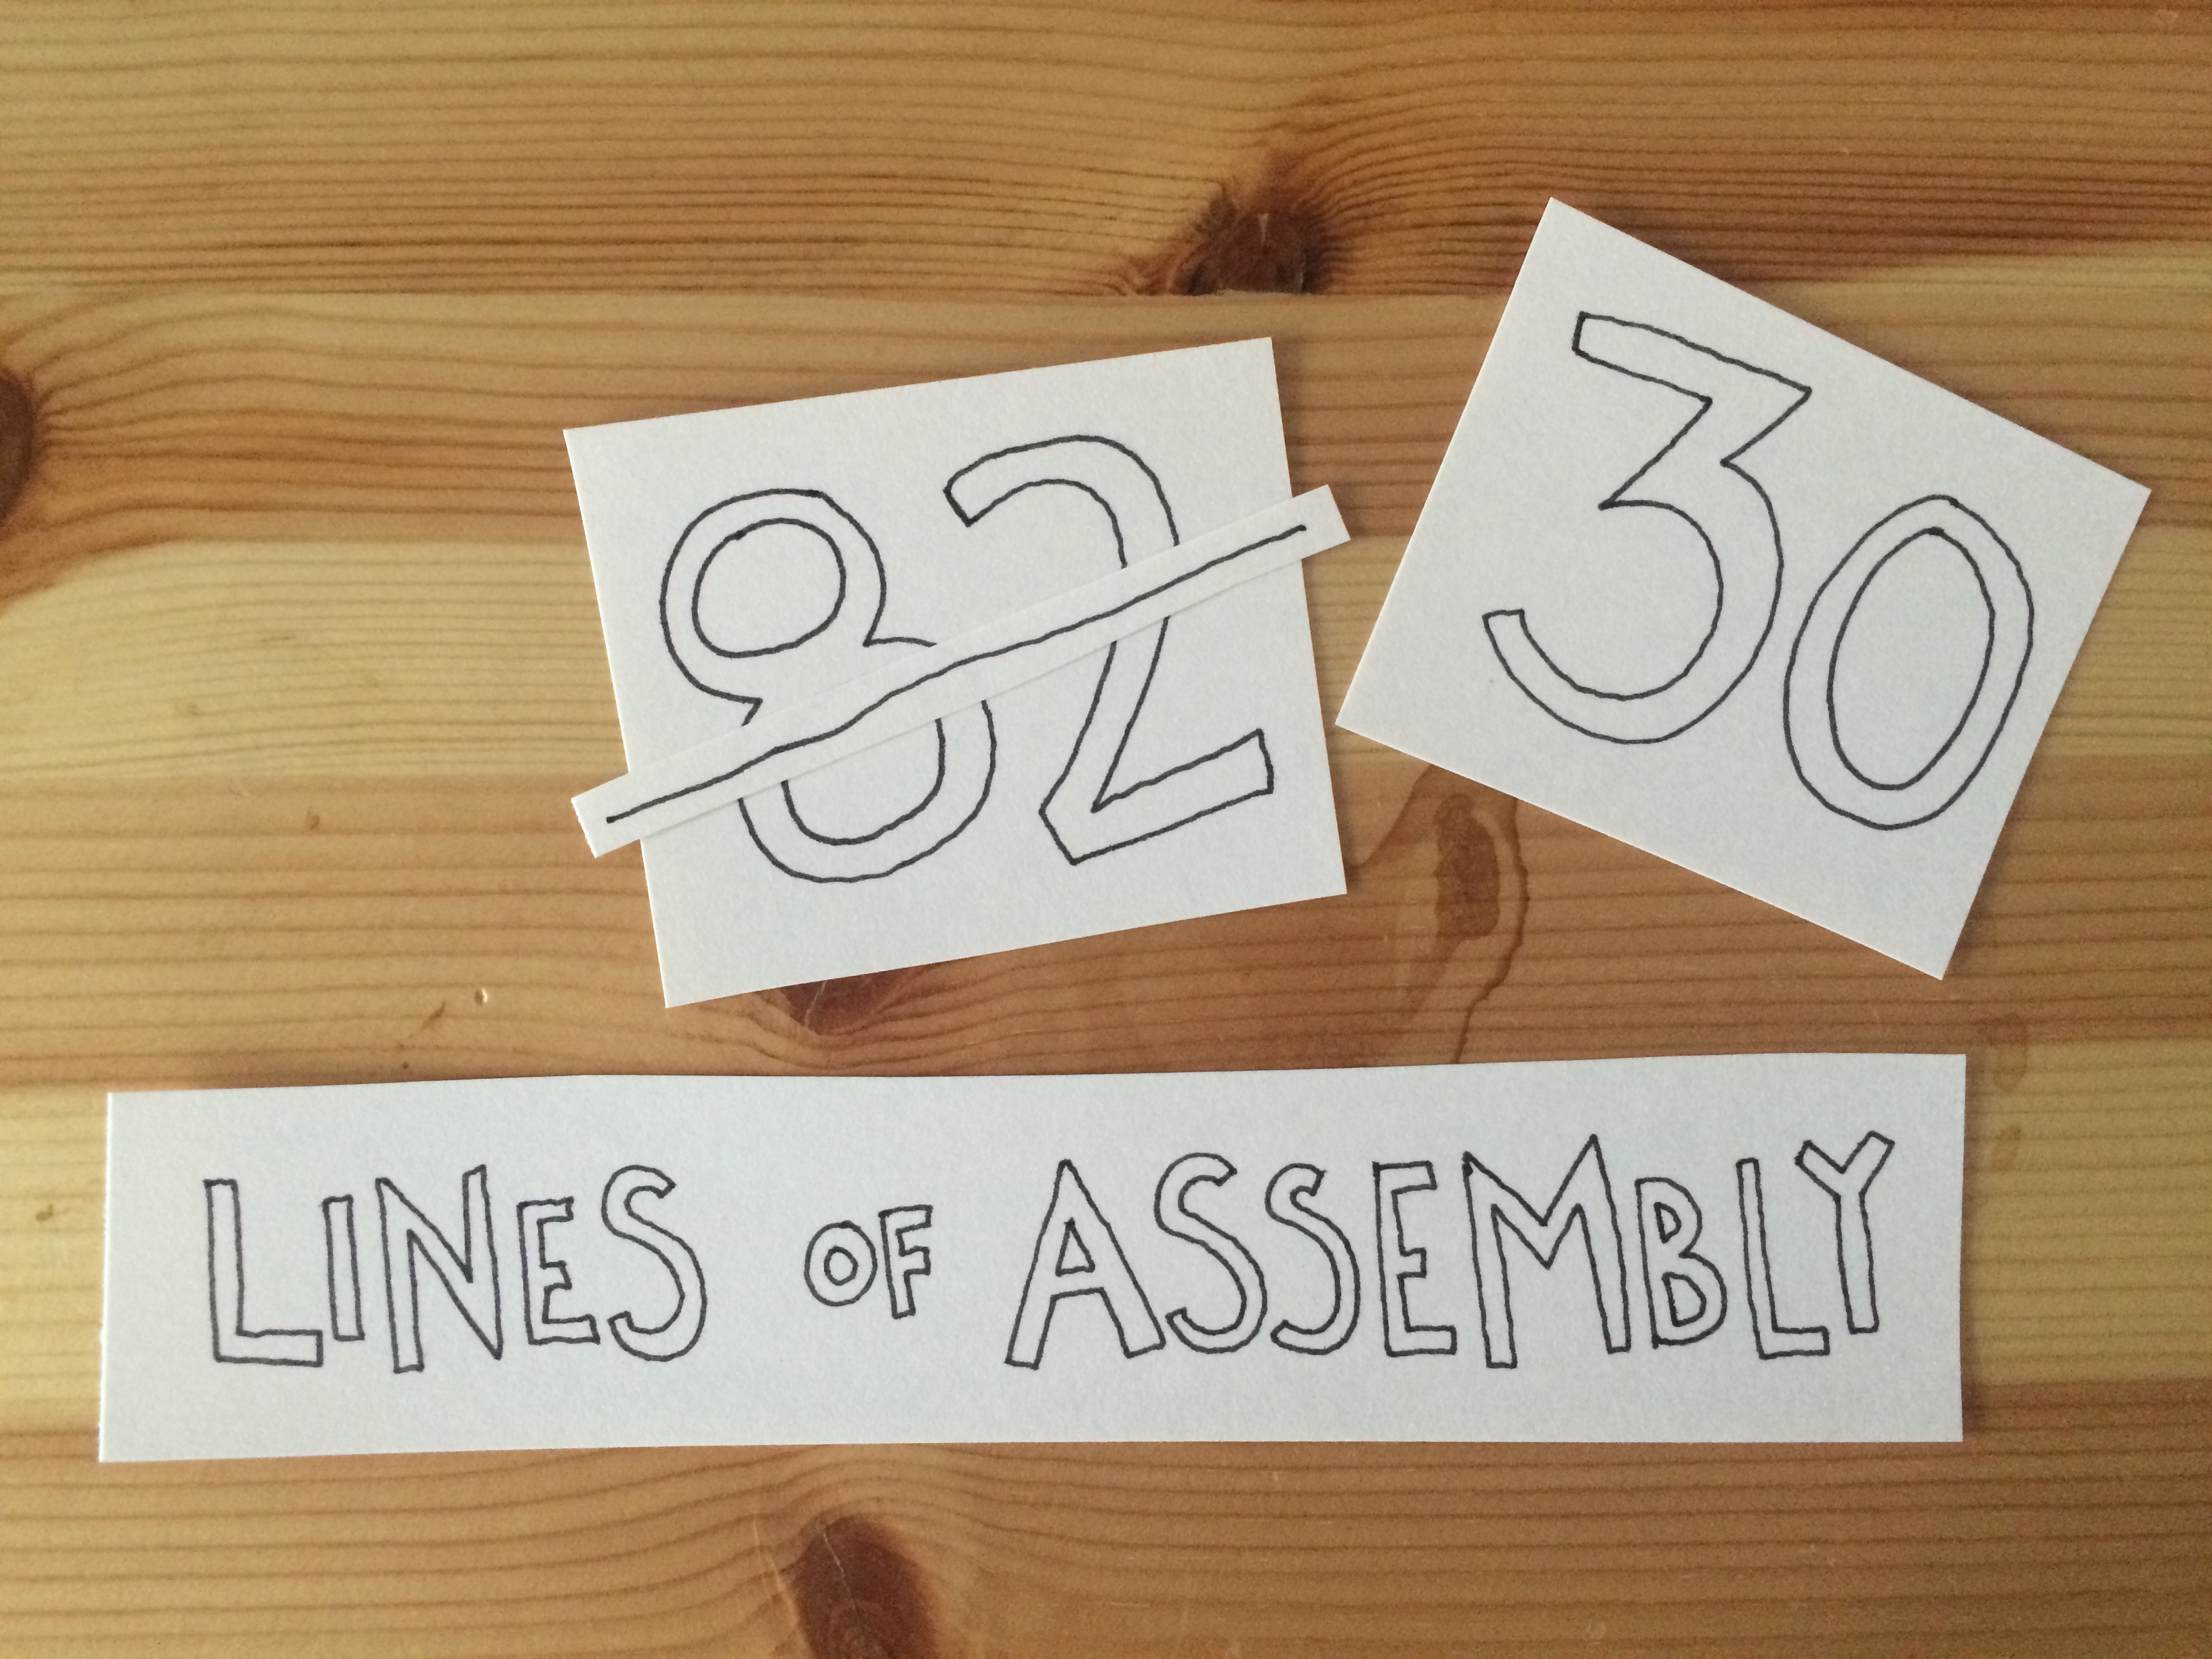 82 30
LINES OF ASSEMBLY